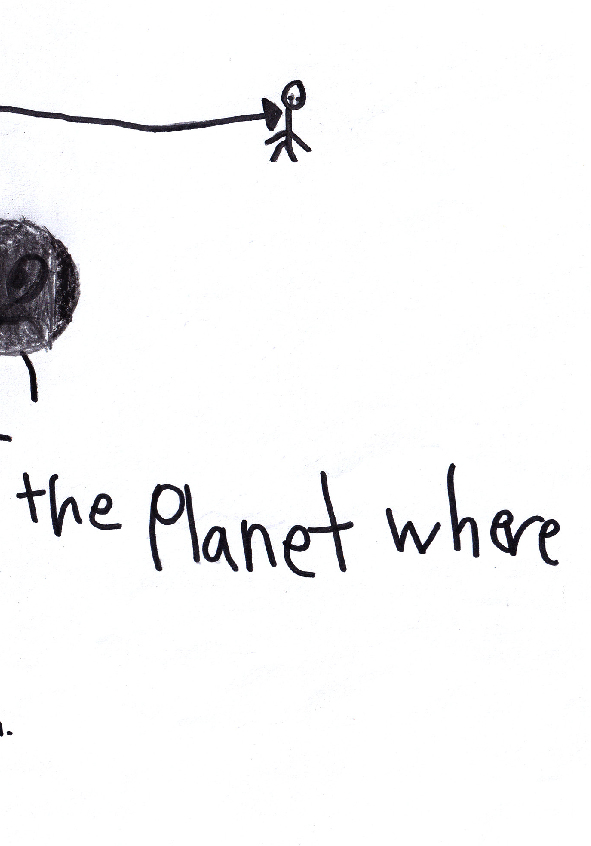 the Planet where